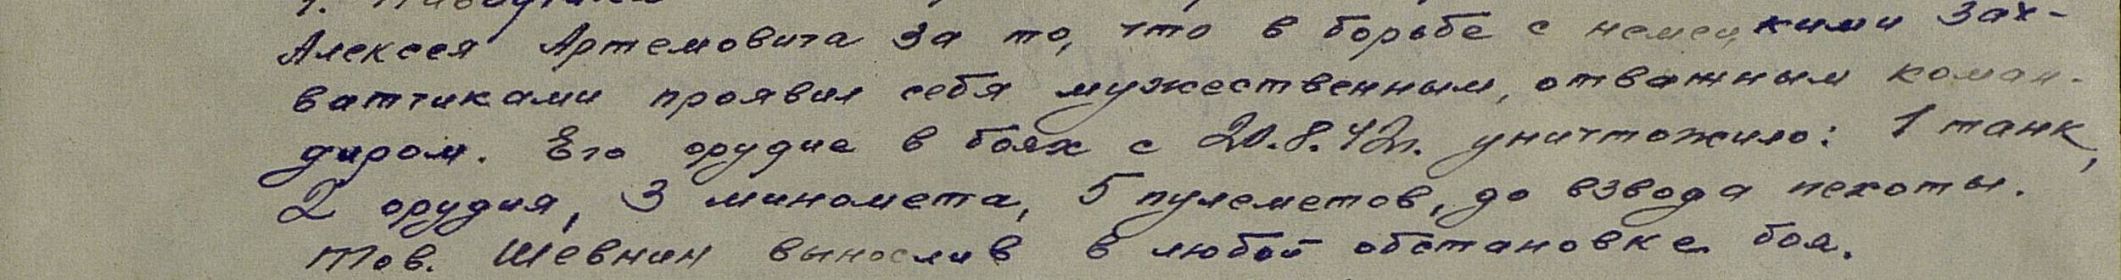 Алексея Артемовича за то, что в борьбе с немецкими зах-
ватчиками проявил себя мужественным, отважным коман-
диром. Его орудие в боях с 20.8.42г. уничтожило: 1 танк,
2 орудия, 3 миномета, 5 пулеметов, до взвода пехоты.
Тов. Шевнин вынослив в любой обстановке боя.